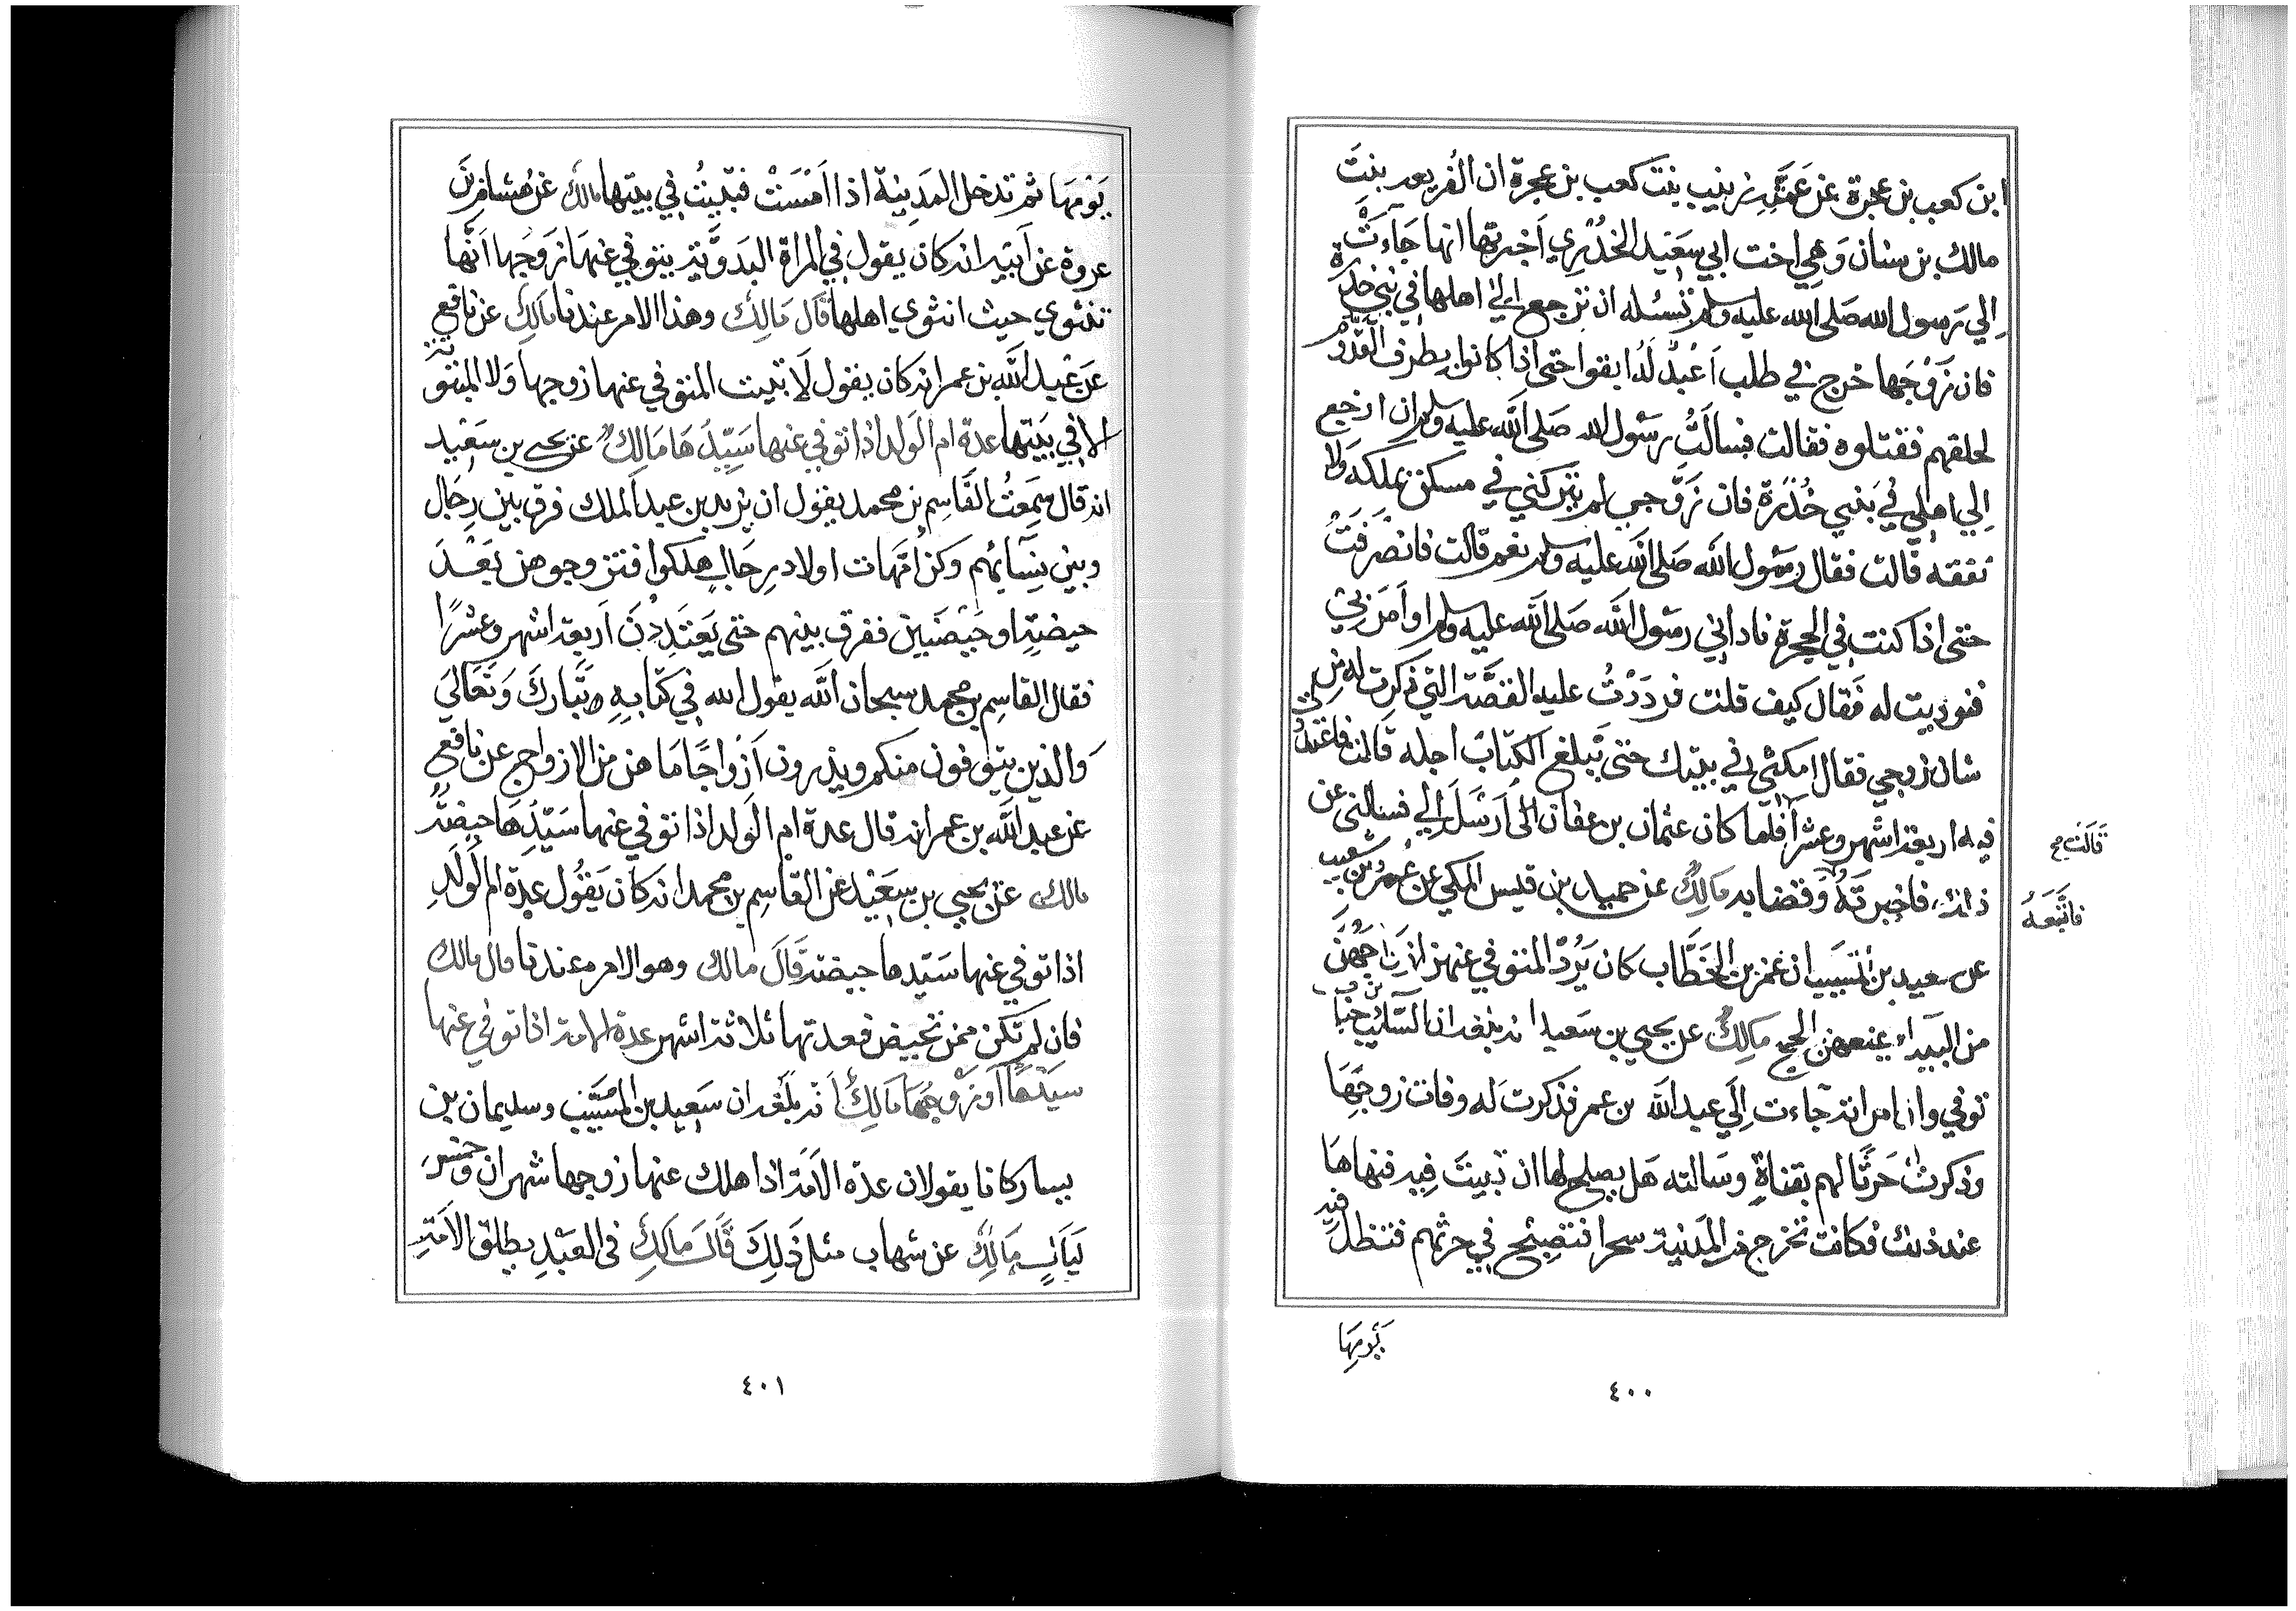 ابن كعب بن عجرة عن عمته زينب بنت كعب بن عجرة ان الفريعه بنت
مالك بن سنان وهي اخت ابي سعيد الخدري اخبرتها انها جاءت
الي رسول الله صلى الله عليه وسلم تسئله ان ترجع الي اهلها في بني خدرة
فان زوجها خرج في طلب اعبد له ابقوا حتى اذا كانوا بطرف القدوم
لحقهم فقتلوه فقالت فسالت رسول الله صلى الله عليه وسلم ان ارجع
الي اهلي في بني خدرة فان زوجي لم يتركني في مسكن يملكه ولا
نفقه قالت فقال رسول الله صلى الله عليه وسلم نعم قالت فانصرفت
حتى اذا كنت في الحجرة ناداني رسول الله صلى الله عليه وسلم او امر بي
فنوديت له فقال كيف قلت فرددت عليه القصة التي ذكرت له من
شان زوجي فقال امكثي في بيتك حتى يبلغ الكتاب اجله قالت فاعتددت
فيه اربعة اشهر وعشرا فلما كان عثمان بن عفان ارسل الي فسالني عن
ذلك فاخبرته وقضا به مالك عن حميد بن قيس المكي عن عمرو بن شعيب
عن سعيد بن المسيب ان عمر بن الخطاب كان يرد المتوفي عنهن ازواجهن
من البيداء يمنعهن الحج مالك عن يحيي بن سعيد انه بلغه ان السائب بن خباب
توفي وان امراته جاءت الي عبد الله بن عمر فذكرت له وفات زوجها
وذكرت حرثا لهم بقناة وسالته هل يصلح لها ان تبيت فيه فنهاها
عند ذلك فكانت تخرج من المدينة سحرا فتصبح في حرثهم فتظل فيه
قالت صح
فاتبعه
يومها
٤٠٠
يومها ثم تدخل المدينة اذا امست فتبيت في بيتها مالك عن هشام بن
عروة عن ابيه انه كان يقول في المراة البدوية يتوفي عنها زوجها انها
تنثوي حيث انثوي اهلها قال مالك وهذا الامر عندنا مالك عن نافع
عن عبد الله بن عمر انه كان يقول لا تبيت المتوفي عنها زوجها ولا المبتوتة
الا في بيتها عدة ام الولد اذا توفي عنها سيدها مالك عن يحيي بن سعيد
انه قال سمعت القاسم بن محمد يقول ان يزيد بن عبد الملك فرق بين رجال
وبين نسائهم وكن امهات اولاد رجال هلكوا فتزوجوهن بعد
حيضة او حيضتين ففرق بينهم حتى يعتددن اربعة اشهر وعشرا
فقال القاسم بن محمد سبحان الله يقول الله في كتابه تبارك وتعالي
والذين يتوفون منكم ويذرون ازواجا ما هن من الازواج عن نافع
عن عبد الله بن عمر انه قال عدة ام الولد اذا توفي عنها سيدها حيضة
مالك عن يحيي بن سعيد عن القاسم بن محمد انه كان يقول عدة ام الولد
اذا توفي عنها سيدها حيضة قال مالك وهو الامر عندنا قال مالك
فان لم تكن ممن تحيض فعدتها ثلاثة اشهر عدة الامة اذا توفي عنها
سيدها او زوجها مالك انه بلغه ان سعيد بن المسيب وسليمان بن
يسار كانا يقولان عدة الامة اذا هلك عنها زوجها شهران وخمس
ليال مالك عن شهاب مثل ذلك قال مالك في العبد يطلق الامة
٤٠١